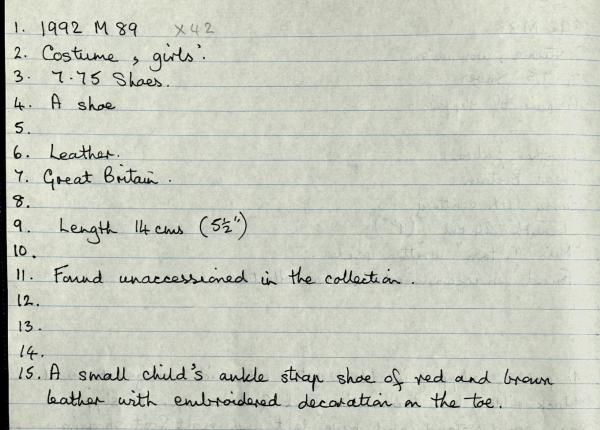 1. 1992 M 89 X42
2. Costume, girls'.
3. 7.75 Shoes.
4. A shoe
5.
6. Leather.
7. Great Britain.
8.
9. Length 14 cms (5½")
10.
11. Found unaccessioned in the collection.
12.
13.
14.
15. A small child's ankle strap shoe of red and brown
leather with embroidered decoration on the toe.